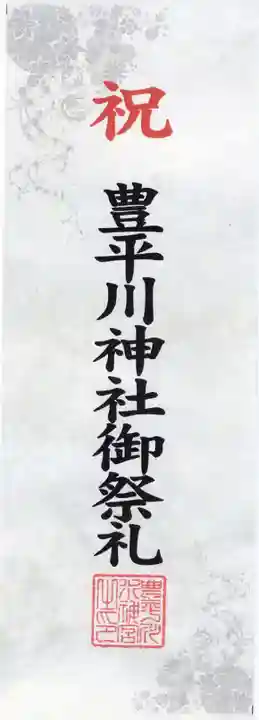 祝
豊平川神社御祭礼
豊平川
水神宮
之印